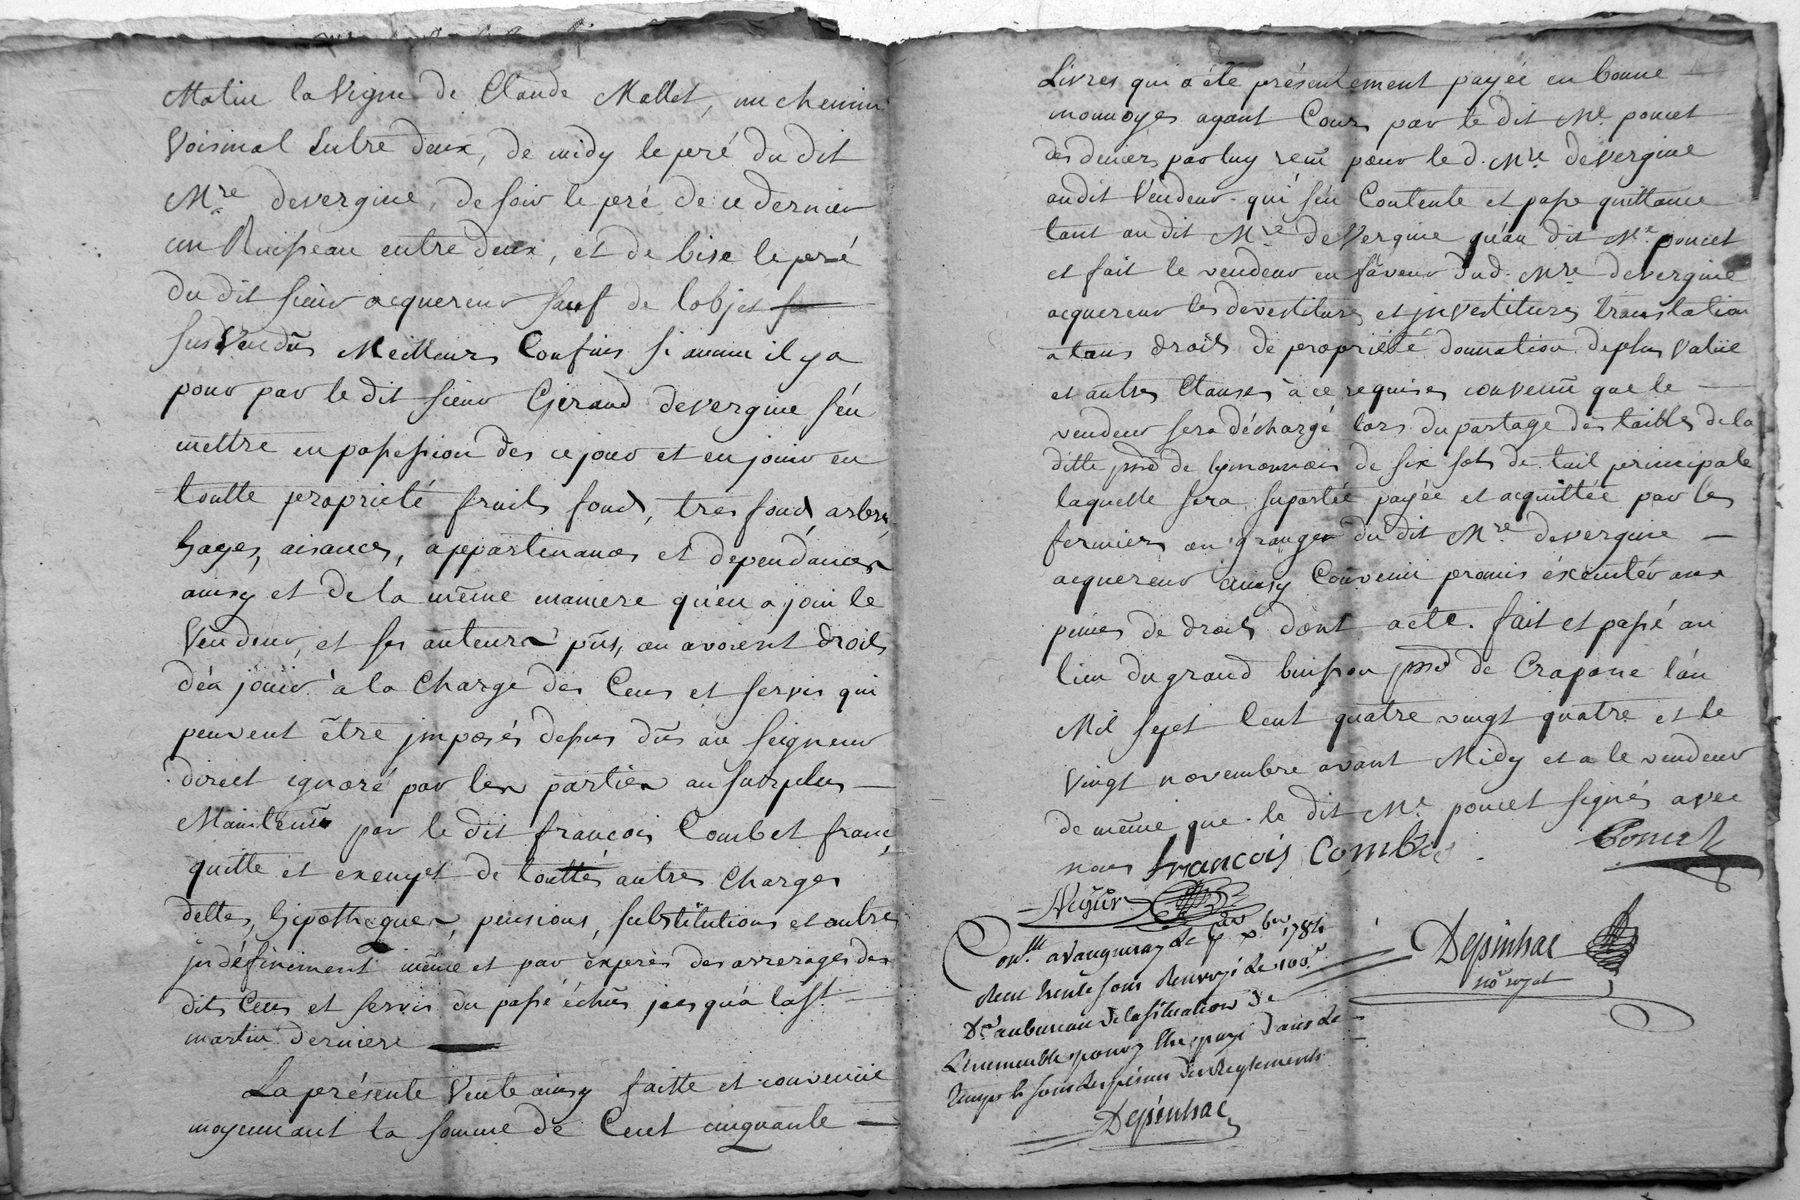 Matin la Vigne de Claude Mallet, un chemin
Voisinal Entre deux, de midy le pré du dit
Mre devergine, de soir le pré de ce dernier
un Ruisseau entre deux, et de bise le pré
du dit sieur acquereur sauf de lobjet
sus Vendûs Meilleurs Confins si aucun il y a
pour par le dit sieur Giraud devergine s'en
mettre en possession des ce jour et en jouir en
toutte propriété fruits fonds, tres fonds, arbres
hayes, aisances, appartenances et dependances
ainsy et de la même maniere qu'en a joui le
Vendeur, et ses auteurs pûs, ou avoient droits
d'en joüir à la Charge des Cens et servis qui
peuvent être jmposés dessus dûs au seigneur
direct ignoré par les parties au surplus
Maintenus par le dit françois Combet franc,
quitte et exempt de touttes autres Charges
dettes, hipotheques, pensions, substitutions et autres
jndéfiniment même et par exprès des arrerages des
dits Cens et servis du passé échûs jusqu'à la st
martin derniere
La présente Vente ainsy faitte et convenüe
moyennant la somme de Cent cinquante
Livres qui a été présentement payée en bonne
monnoyes ayant Cours par le dit Me poncet
des deniers par luy remis pour le d. Mre devergine
audit Vendeur qui s'en Contente et passe quittance
tant au dit Mre deVergine qu'au dit Me poncet
et fait le vendeur en faveur dud. Mre devergine
acquereur les devestitures et jnvestitures translation
a tous droits de propriété donnation de plus Value
et autres Clauses à ce requises convenû que le
vendeur sera déchargé lors du partage des tailles de la
ditte psse de lymonnois de six sols de tail principale
laquelle sera suportée payée et acquittée par les
fermiers ou granger du dit Mre devergine
acquereur ainsy Convenu promis éxécuter aux
peines de droits dont acte. fait et passé au
lieu du grand buisson psse de Crapone l'an
Mil sept Cent quatre vingt quatre et le
Vingt novembre avant Midy et a le vendeur
de même que le dit Me poncet signés avec
nous françois Combet Poncet
Conllé a Vaugneray le 1784
Recu trente sous Renvoyé le 100e
Dr au bureau de la situation de
L'immeuble pour y Etre payé dans le
temps sous les peines des Reglements
Depinhac
Depinhac
nore royal